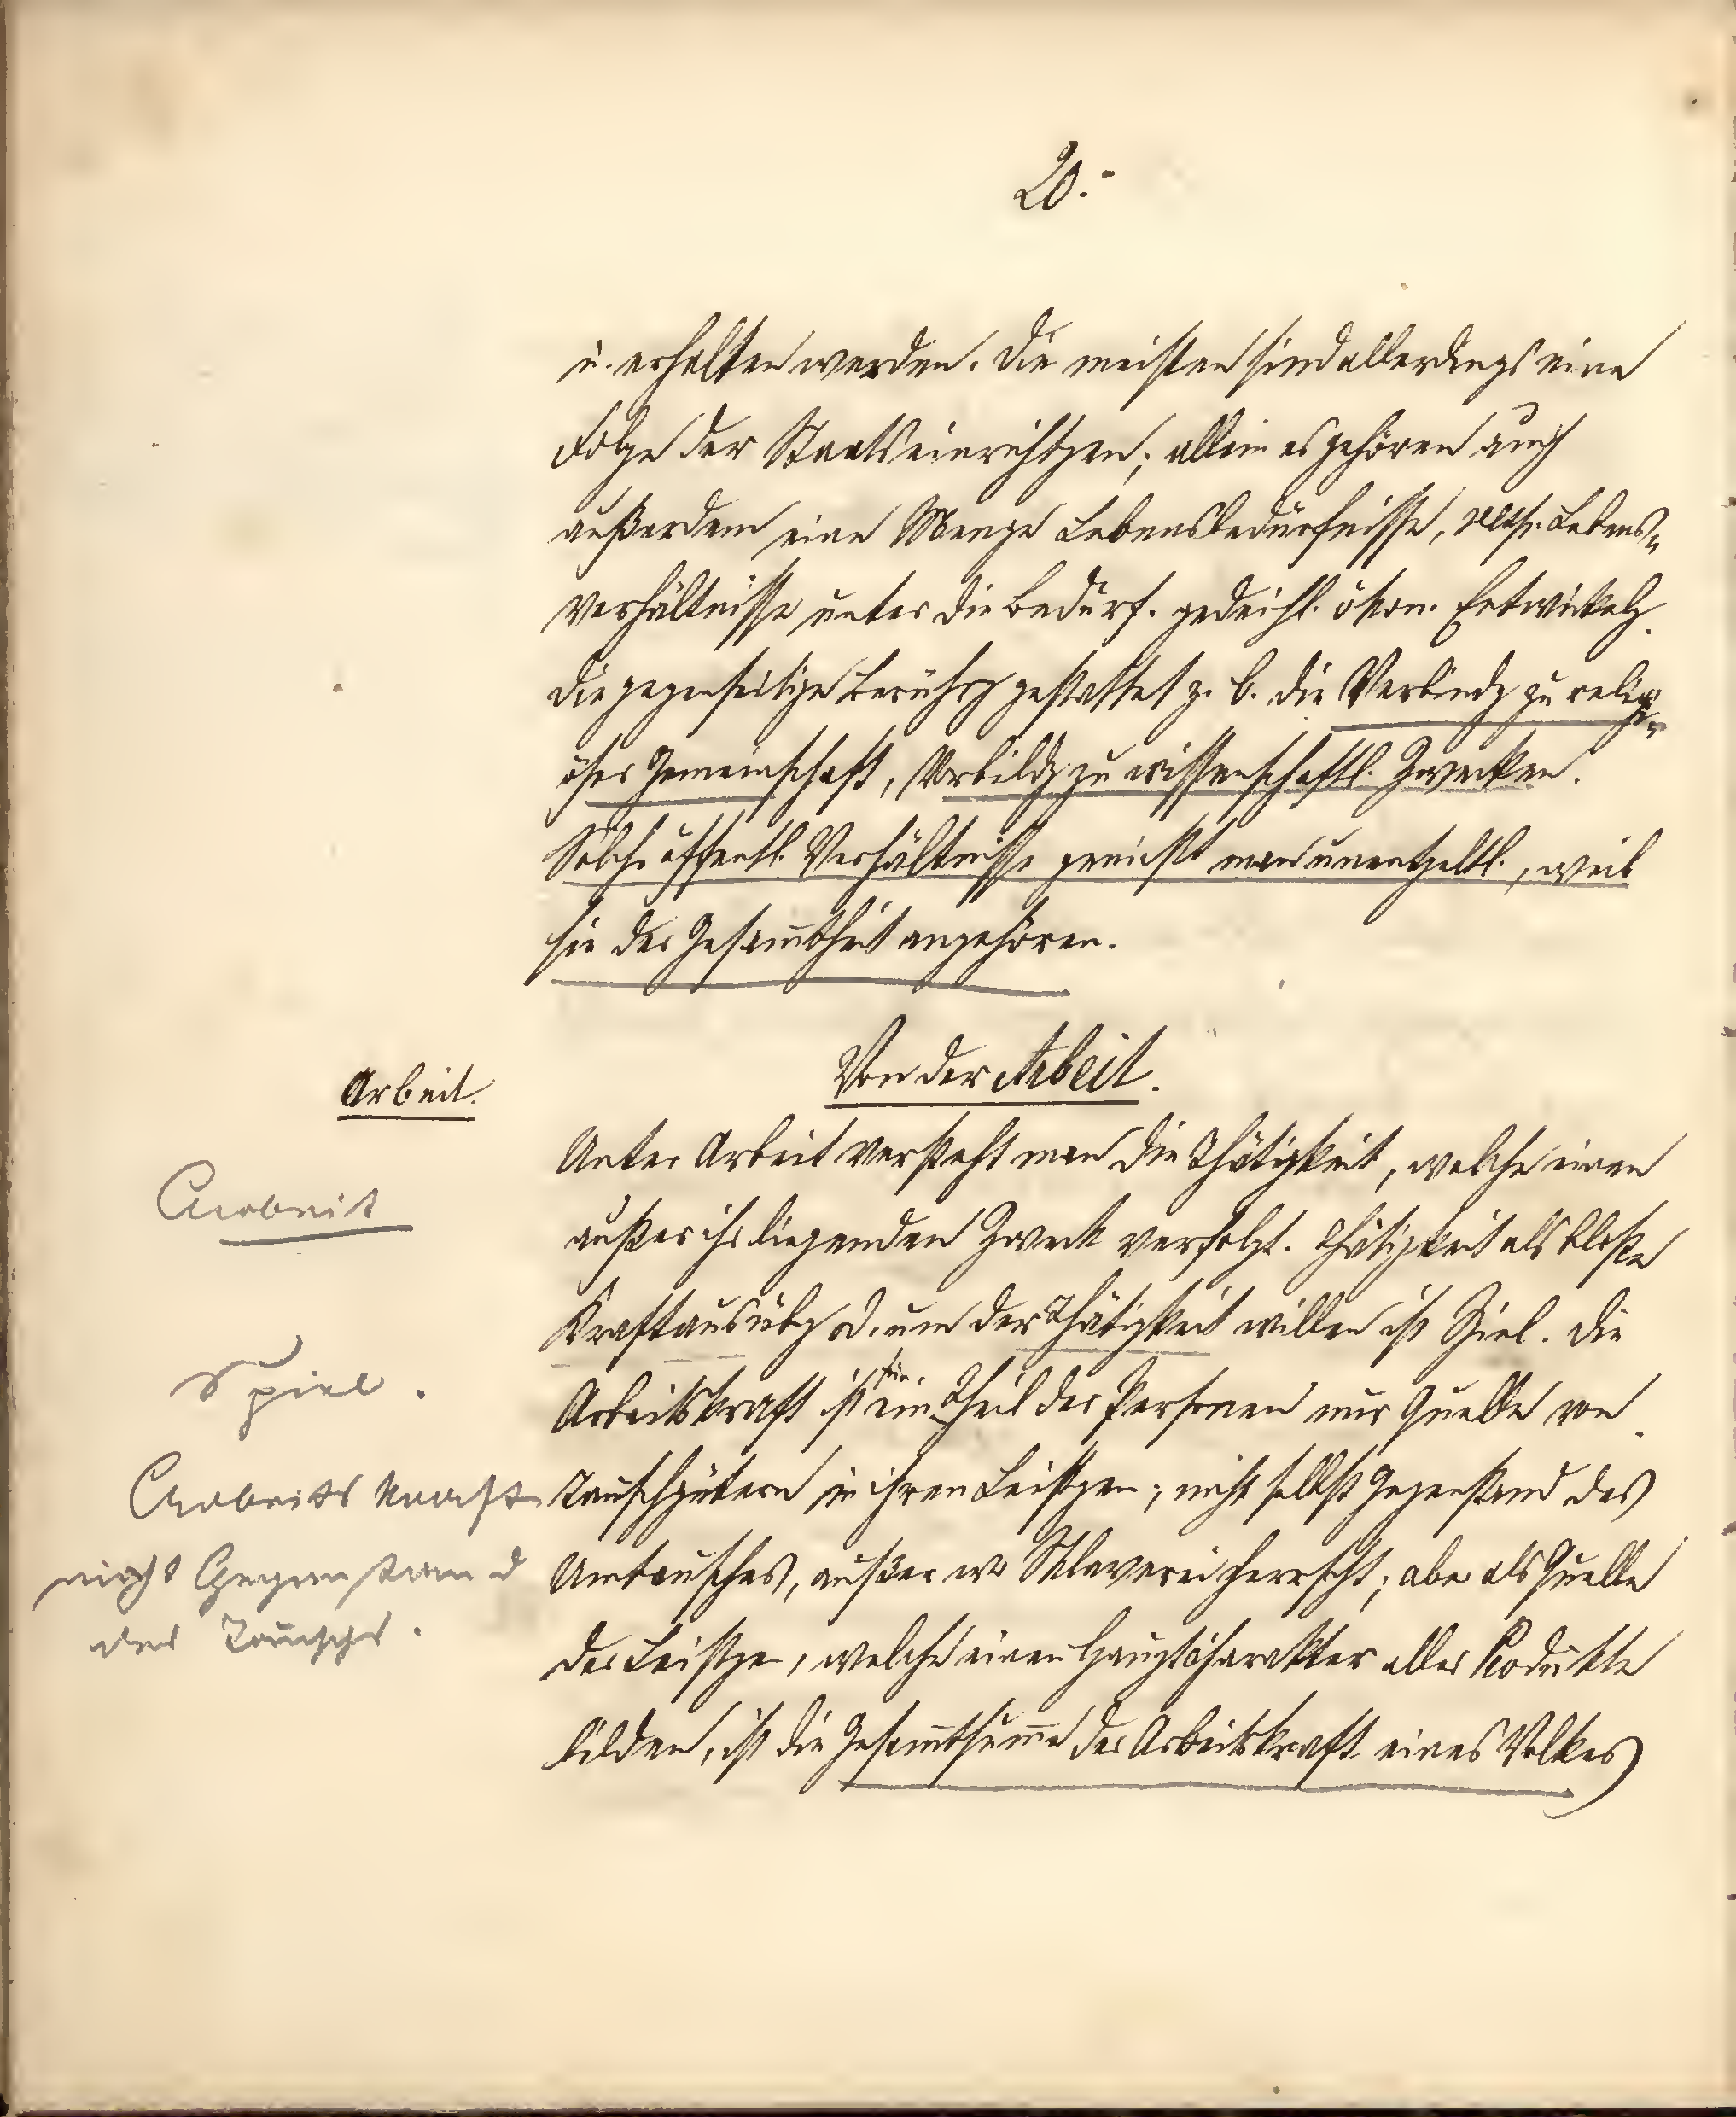 20.-
u. erhalten werden. Die meisten sind allerdings eine
Folge der Staatseinrichtgen; allein es gehören auch
außerdem eine Menge Lebensbedürfnisse, resp. Lebens-
verhältnisse unter die Bedürf. gedeihl. ökon. Entwickelg.
die gegenseitige Berührg gestattet z. B. die Verbindg zu religi-
öser Gemeinschaft, Vorbildg zu wissenschaftl. Zwecken.
Solche öffentl. Verhältnisse genießt man unentgeltl., weil
sie der Gesammtheit angehören.
Arbeit.
Von der Arbeit.
Arbeit
Unter Arbeit versteht man die Thätigkeit, welche einen
außer ihr liegenden Zweck verfolgt. Thätigkeit als bloße
Kraftausübg od. um der Thätigkeit willen ist Spiel. Die
Spiel.
Arbeitskraft ist ein Theil der Personen nur Quelle von
Arbeitskraft
nicht Gegenstand
des Tausches.
Tauschgütern in ihren Leistgen; nicht selbst Gegenstand des
Umtausches, außer wo Sklaverei herrscht; aber als Quelle
der Leistgen, welche einen Hauptcharakter aller Produkte
bilden, ist die Gesammtsumme der Arbeitskraft eines Volkes